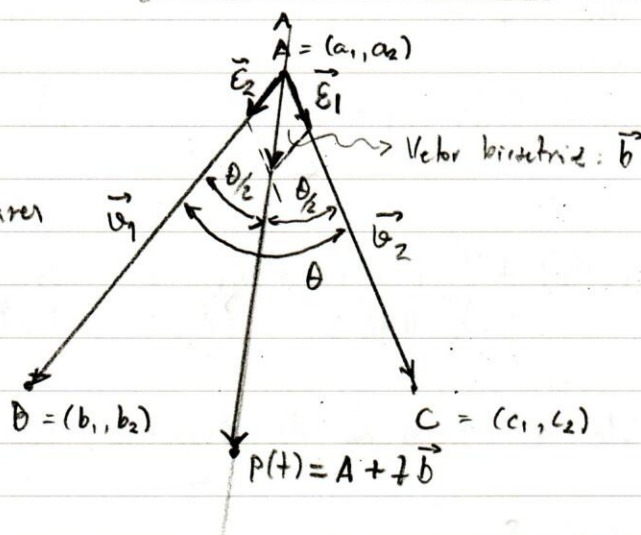 A
A = (a₁, a₂)
ε⃗₂ ε⃗₁
Vetor bissetriz : b⃗
θ/2 θ/2
v⃗₁ v⃗₂
θ
B = (b₁, b₂) C = (c₁, c₂)
P(t) = A + t b⃗